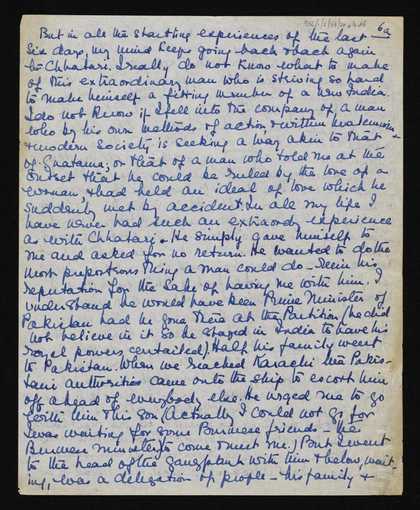 6a
But in all the startling experiences of the last
six days, my mind keeps going back & back again
to Chhatari. I really do not know what to make
of this extraordinary man who is striving so hard
to make himself a fitting member of a new India.
I do not know if I fell into the company of a man
who by his own methods of action, & within
& modern society is seeking a way akin to that
of Guatama; or that of a man who told me at the
outset that he could be ruled by the love of a
woman, & had held an ideal of love which he
suddenly met by accident. In all my life I
have never had such an extraordy experience
as with Chhatari. He simply gave himself to
me and asked for no return. He wanted to do the
most preposterous thing a man could do – ruin his
reputation for the sake of having me with him. I
understand he would have been Prime Minister of
Pakistan had he gone there at the Partition (he did
not believe in it so he stayed in India to have his
royal powers curtailed). Half his family went
to Pakistan. When we reached Karachi the Pakis-
tani authorities came onto the ship to escort him
off ahead of everybody else. He urged me to go
with him & his son (Actually I could not go for
I was waiting for some Burmese friends – the
Burmese minister to come & meet me.) But I went
to the head of the gangplank with him & below, wait-
ing, was a delegation of people – his family &